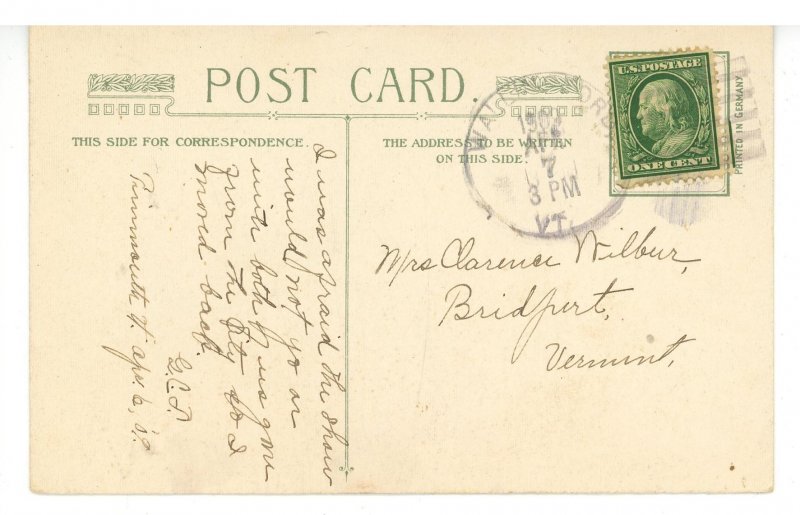 POST CARD.
THIS SIDE FOR CORRESPONDENCE.
THE ADDRESS TO BE WRITTEN
ON THIS SIDE.
U.S. POSTAGE
ONE CENT
PRINTED IN GERMANY
WAL
1909
APR
7
3 PM
VT.
I was afraid the show
would not go on
with both of us gone
from the City so I
moved back.
G.C.P.
Tinmouth Vt. Apr. 6, '09
Mrs Clarence Wilbur,
Bridport,
Vermont,